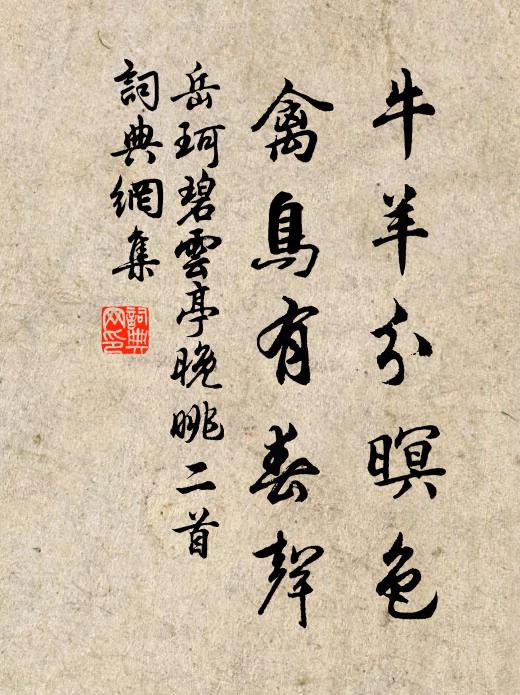 牛羊分暝色
禽鳥有春聲
岳珂碧雲亭晚眺二首
詞典網集
詞典
網印